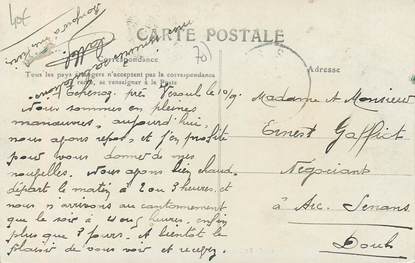 CARTE POSTALE
Correspondance
Tous les pays étrangers n'acceptent pas la correspondance
au recto (se renseigner à la Poste)
Adresse
près Vesoul le 10/9
Nous sommes en pleines
manœuvres, aujourd'hui,
nous avons repos, et j'en profite
pour vous donner de mes
nouvelles. Nous avons bien chaud.
départ le matin à 2 ou 3 heures, et
nous n'arrivons au cantonnement
que le soir à 4 ou 5 heures. enfin
plus que 7 jours. A bientôt le
plaisir de vous voir et recevez
Madame et Monsieur
Ernest
Négociant
à Arc. Senans
Doub